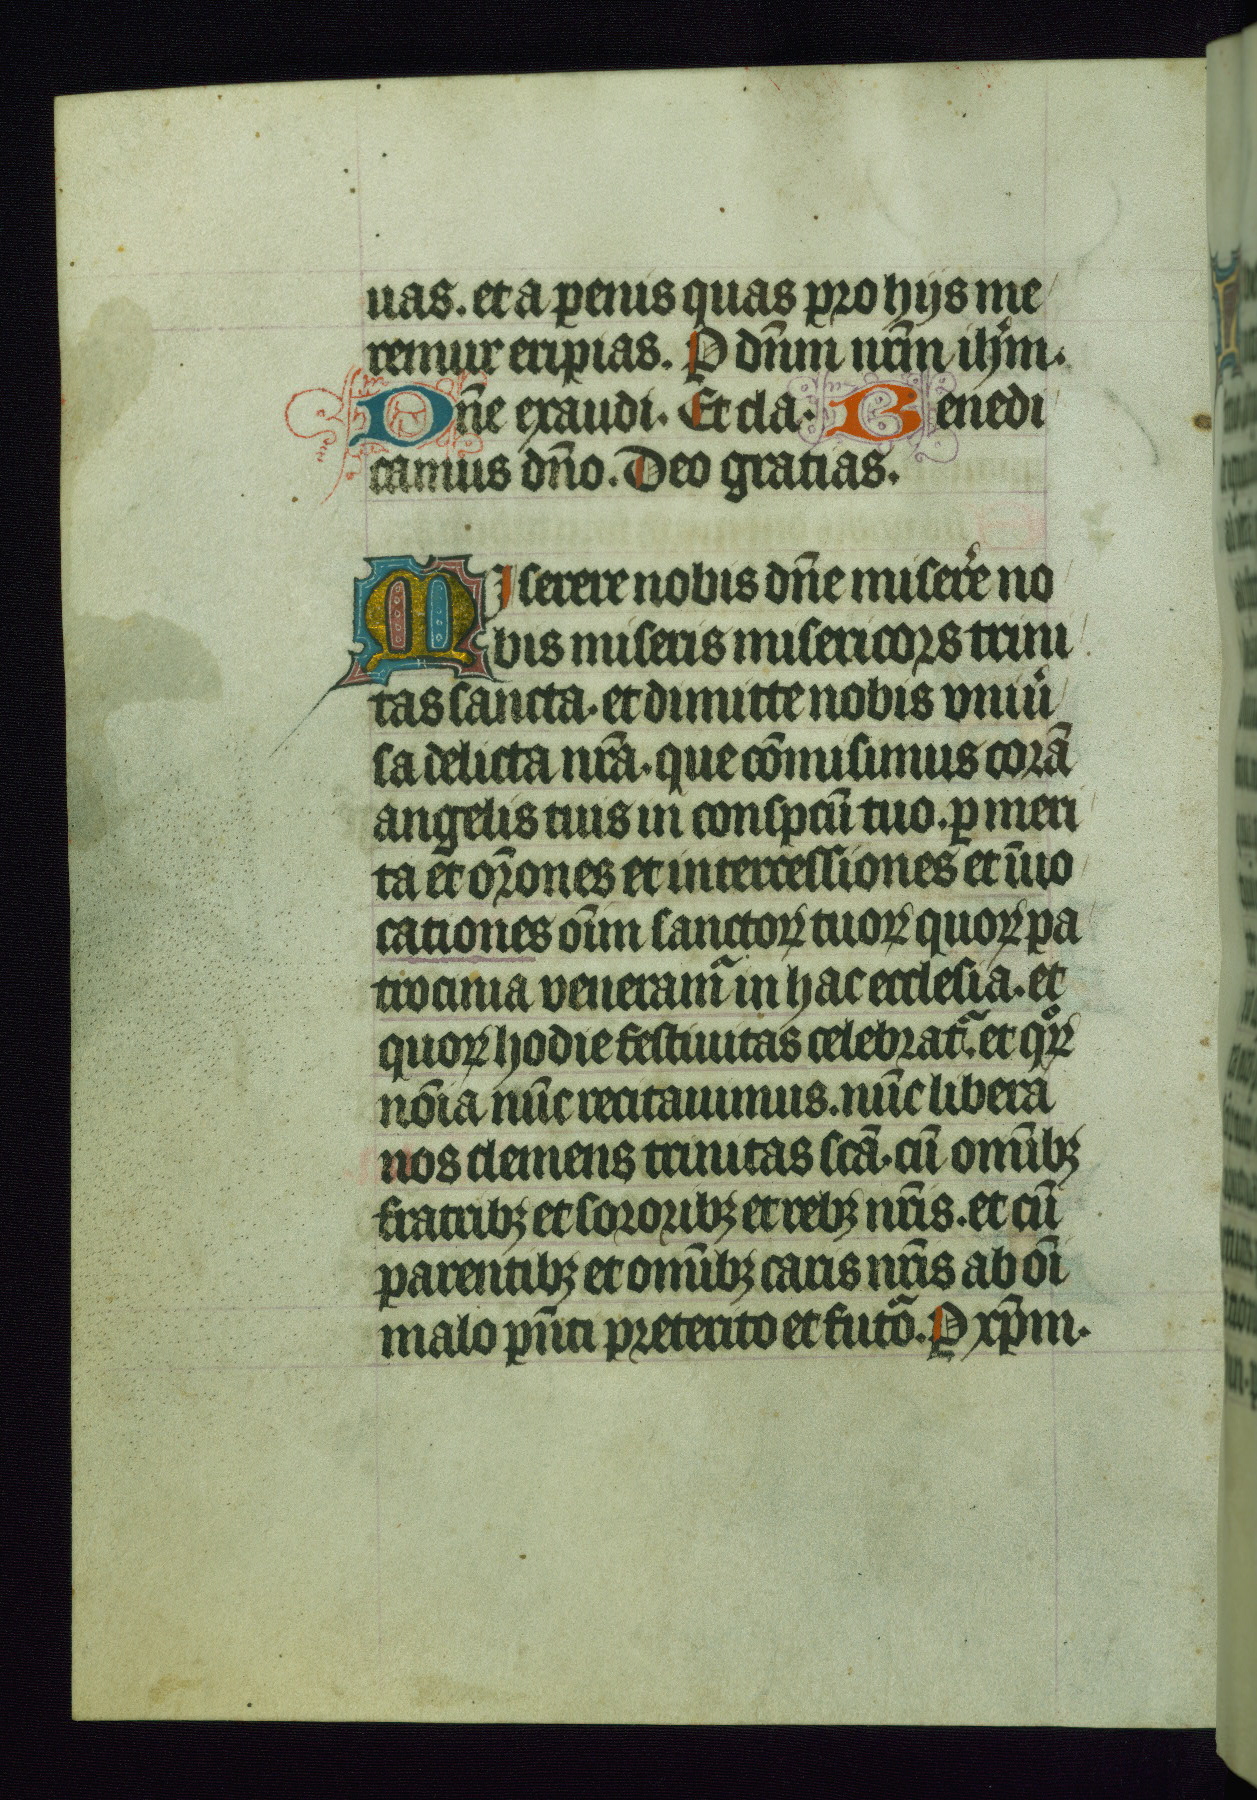 uas. et a penis quas pro hijs me
remur eripias. P dn̄m nr̄m ih̄m.
Dn̄e exaudi. Et cla. Benedi
camus dn̄o. Deo gratias.
Miserere nobis dn̄e miser̄e no
bis miseris misericors trini
tas sancta. et dimitte nobis vniu͛
sa delicta nr̄a. que cōmisimus corā
angelis tuis in conspcū tuo. ꝑ meri
ta et or̄ones et intercessiones et īuo
cationes oīm sanctoꝝ tuoꝝ quoꝝ pa
trocinia veneram᷑ in hac ecclesia. et
quoꝝ hodie festiuitas celebrat᷑. et qͦꝝ
nōia nūc recitauimus. nūc libera
nos clemens trinitas scā. cū omībꝫ
fratribꝫ et sororibꝫ et rebꝫ nr̄is. et cū
parentibꝫ et omībꝫ caris nr̄is ab oī
malo pn̄ti preterito et futō. P xp̄m.